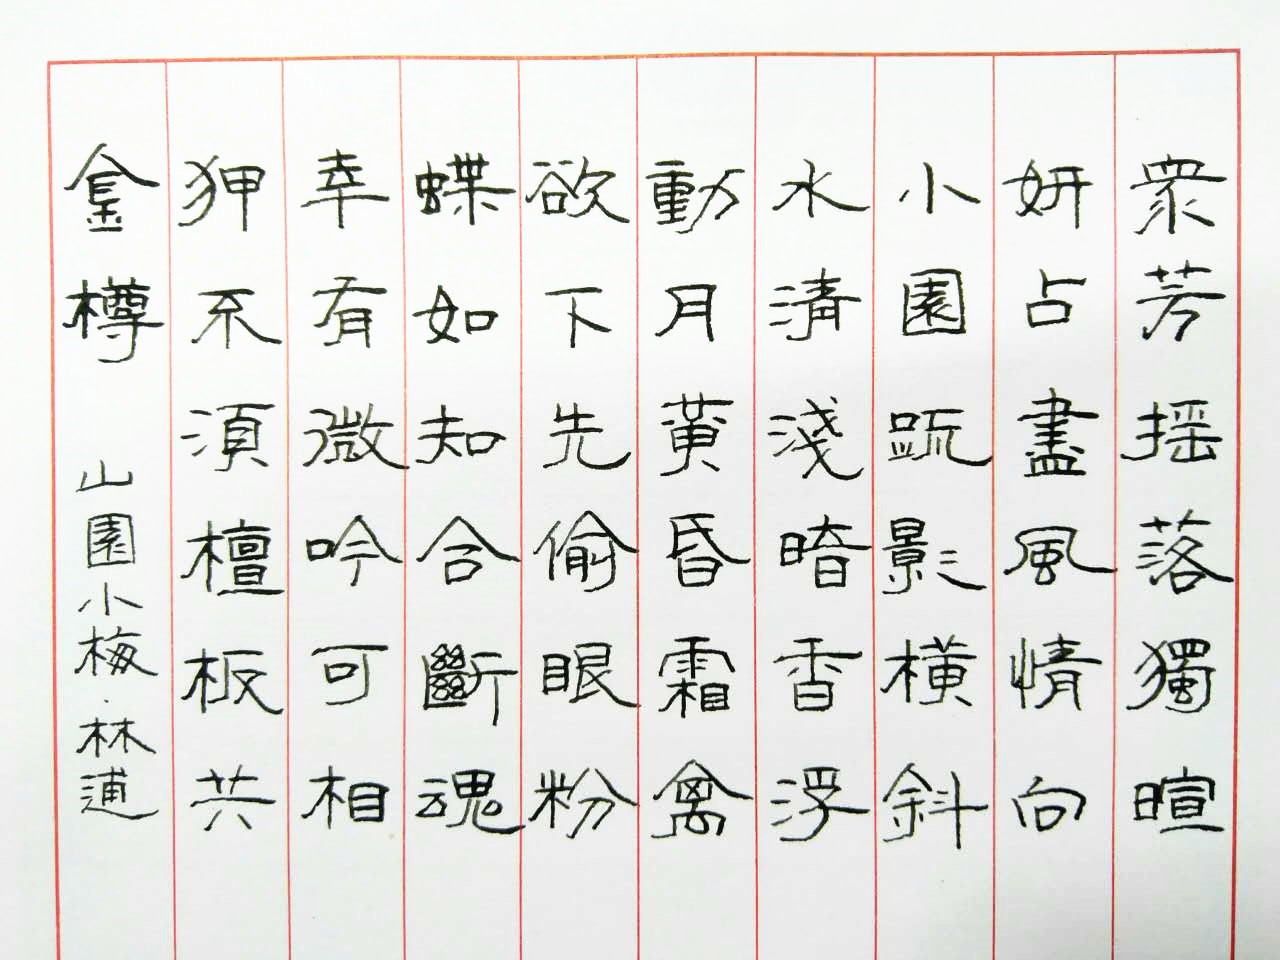 眾芳揺落獨暄
妍占盡風情向
小園疏影橫斜
水清淺暗香浮
動月黃昏霜禽
欲下先偷眼粉
蝶如知合斷魂
幸有微吟可相
狎不須檀板共
金樽 山園小梅·林逋